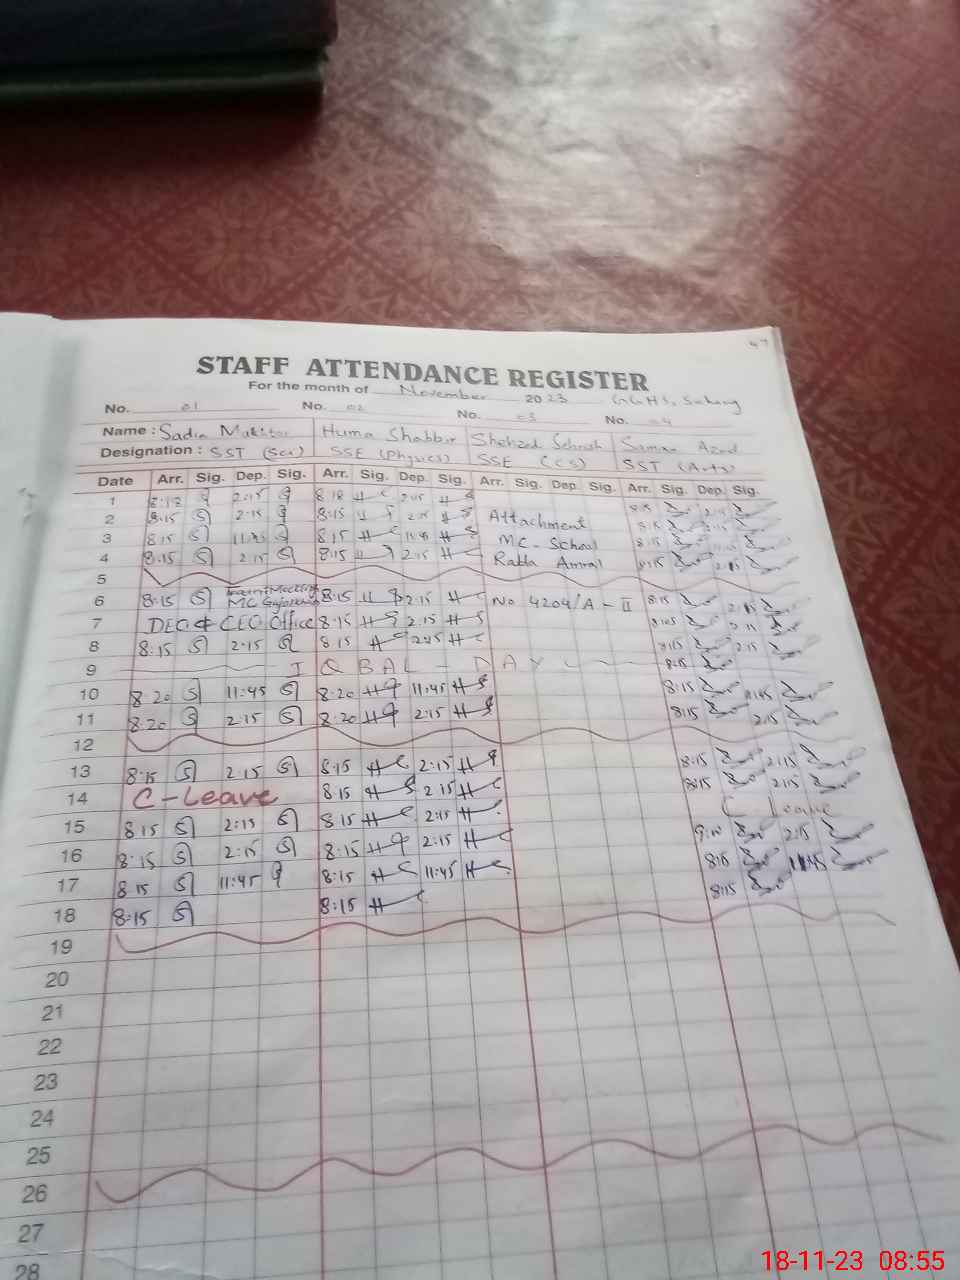 47
STAFF ATTENDANCE REGISTER
For the month of November 2023 GGHS,
No. 01 No. 02 No. 03 No. 04
Name : Sadia Huma Shabbir Shehzad Saman Azad
Designation : SST (Sci) SSE (Physics) SSE (CS) SST (Arts)
Date Arr. Sig. Dep. Sig. Arr. Sig. Dep. Sig. Arr. Sig. Dep. Sig. Arr. Sig. Dep. Sig.
1 8:18 2:15 8:18 2:15 8:15 2:15
2 8:15 2:15 8:15 2:15 Attachment 8:15 2:15
3 8:15 8:15 MC-School
4 8:15 2:15 8:15 2:15 Rabta 8:15 2:15
5
6 8:15 Meeting MC 8:15 2:15 No 4204/A-II 8:15 2:15
7 DEO & CEO Office 8:15 2:15 8:05 2:15
8 8:15 2:15 8:15 2:15 8:15 2:15
9 IQBAL - DAY 8:15
10 8:20 11:45 8:20 11:45 8:15 11:45
11 8:20 2:15 8:20 2:15 8:15 2:15
12
13 8:15 2:15 8:15 2:15 8:15 2:15
14 C-Leave 8:15 2:15 8:15 2:15
15 8:15 2:15 8:15 2:15 C Leave
16 8:15 2:15 8:15 2:15 9:10 2:15
17 8:15 11:45 8:15 11:45 8:15 11:45
18 8:15 8:15 8:15
19
20
21
22
23
24
25
26
27
28
18-11-23 08:55